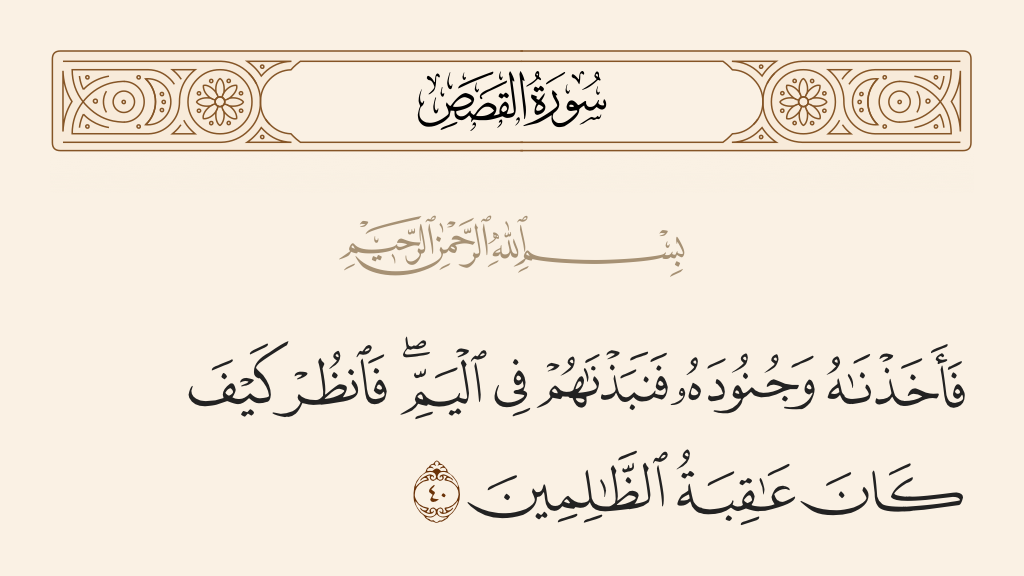 سُورَةُ القَصَصِ
بِسْمِ ٱللَّهِ ٱلرَّحْمَٰنِ ٱلرَّحِيمِ
فَأَخَذْنَٰهُ وَجُنُودَهُۥ فَنَبَذْنَٰهُمْ فِى ٱلْيَمِّ ۖ فَٱنظُرْ كَيْفَ
كَانَ عَٰقِبَةُ ٱلظَّٰلِمِينَ ٤٠